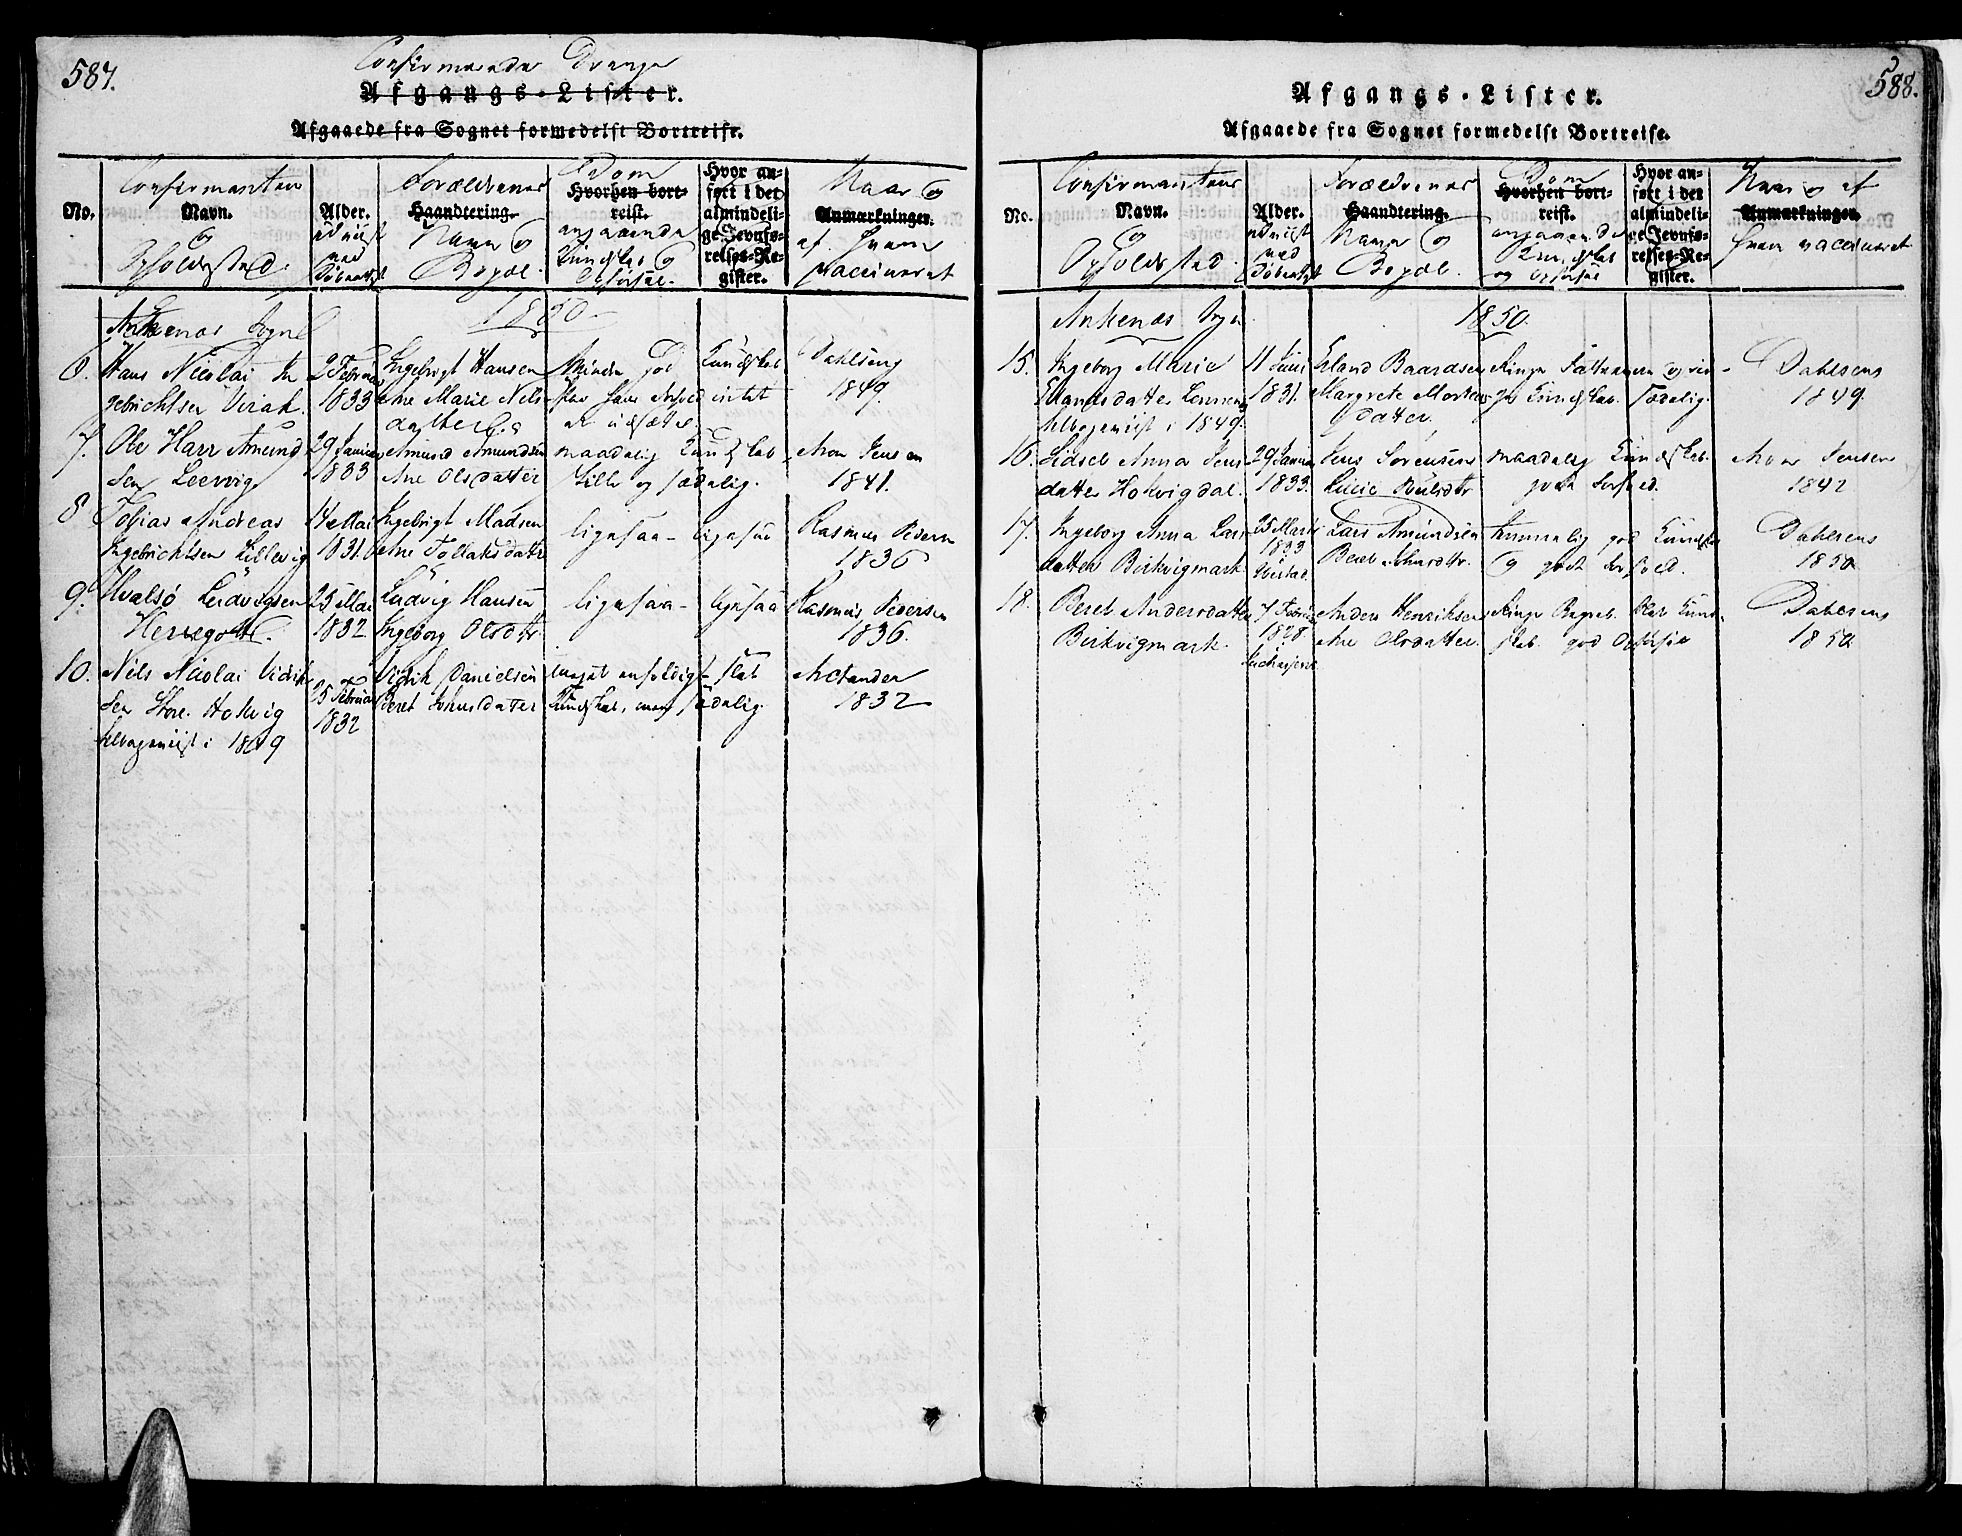 587.
Confirmerede Drenge
Afgangs-Lister.
Afgaaede fra Sognet formedelst Bortreise.
No.
Confirmanten
Navn.
og
Opholdssted.
Alder.
udviist
ved
Døbeattest
Forældrenes
Haandtering.
Navn og
Bopæl.
Dom
Hvorhen bort-
reist.
angaaende
Kundskab og
Opførsel.
Hvor an-
ført i det
almindeli-
ge Jevnfø-
relses-Re-
gister.
Naar og
Anmærkninger.
af hvem
vaccineret
Ankenæs Sogn
1850
6. Hans Nicolai In
gebrichtsen
2 Februar
1833
Ingebrigt Hansen
Ane Marie Nils-
datter
Minder god Kundskab
intet
at udsætte
Dahlsens
1849.
7. Ole Harr Amund
sen Leervig
29 Januar
1833
Amund Amundsen
Ane Olsdatter
maadelig Kundskab
Stille og sædelig.
Aron Jensen
1841.
8 Tobias Andreas
Ingebrichtsen Lillevig
14 Mai
1831.
Ingebrigt Madsen
Ane Tollaksdatr
ligesaa – ligesaa
Rasmus Pedersen
1836
9. Hvalsø Ludvigsen
Herregott.
25 Mai
1832
Ludvig Hansen
Ingeborg Olsdtr.
ligesaa – ligesaa
Rasmus Pedersen
1836.
10. Nils Nicolai Vidik
sen Store. Holvig
tilbageviist i 1849
25 Februar
1832
Vidik Danielsen
Beret Johnsdatter
meget enfoldig – slet
Kundskab, men sædelig.
Actander
1832
588.
Afgangs-Lister.
Afgaaede fra Sognet formedelst Bortreise.
No.
Confirmantens
Navn.
og
Opholdssted.
Alder.
udviist
ved
Døbeattest
Forældrenes
Haandtering.
Navn og
Bopæl.
Dom
Hvorhen bort-
reist.
angaaende
Kundskab
og Opførsel
Hvor an-
ført i det
almindeli-
ge Jevnfø-
relses-Re-
gister.
Naar og af
Anmærkninger.
hvem vaccineret
Ankenæs Sogn
1850.
15. Ingeborg Marie
Erlandsdatter
tilbageviist i 1849.
11 Juni
1831.
Erland Baardsen
Margrete Mortens-
datter.
Ringe Fatteevne og rin-
ge Kundskab. Sædelig.
Dahlsens
1849.
16. Lidsel Anna Jens-
datter Holvigdal.
29 Januar
1833.
Jens Sørensen
Lucie Poulsdtr.
maadelig Kundskab.
godt Forhold.
Aron Jensen
1842
17. Ingeborg Anna Lars
datter Birkvigmark
25 Marts
1833
Lars Amundsen
temmelig god Kundskab
og godt Forhold.
Dahlsens
1850
18. Beret Andersdatter
Birkvigmark.
7 Februar
1828.
Anders Henriksen
Ane Olsdatter.
Ringe Begreb. Slet Kund-
skab. god Opførsel
Dahlsens
1850